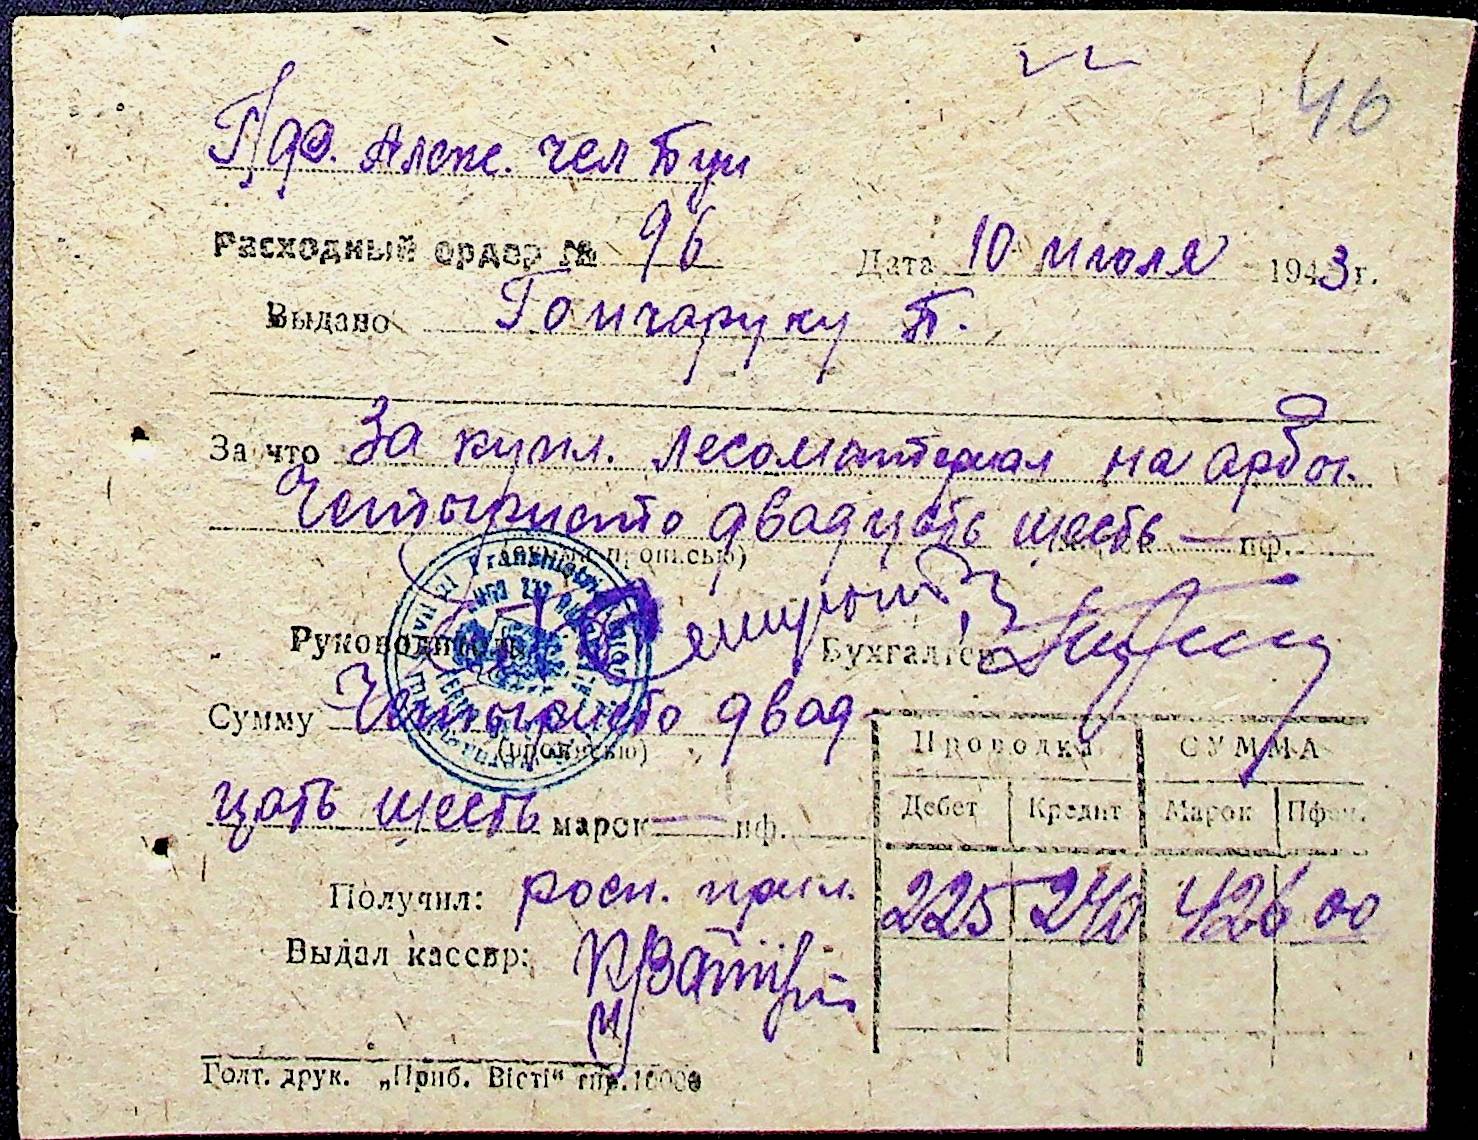 46
Расходный ордер № 96 Дата 10 июля 1943 г.
Выдано Гончаруку П.
За что За купл. лесоматериал на арбы.
Четыриста двадцать шесть — пф.
(сумма прописью)
Руководитель Бухгалтер
Сумму Четыриста двад-
(прописью)
цать шесть марок — пф.
Проводка СУММА
Дебет Кредит Марок Пфен.
225 240 426 00
Получил: росп. прил.
Выдал кассир:
Голт. друк. „Приб. Вісті“ тир. 10000